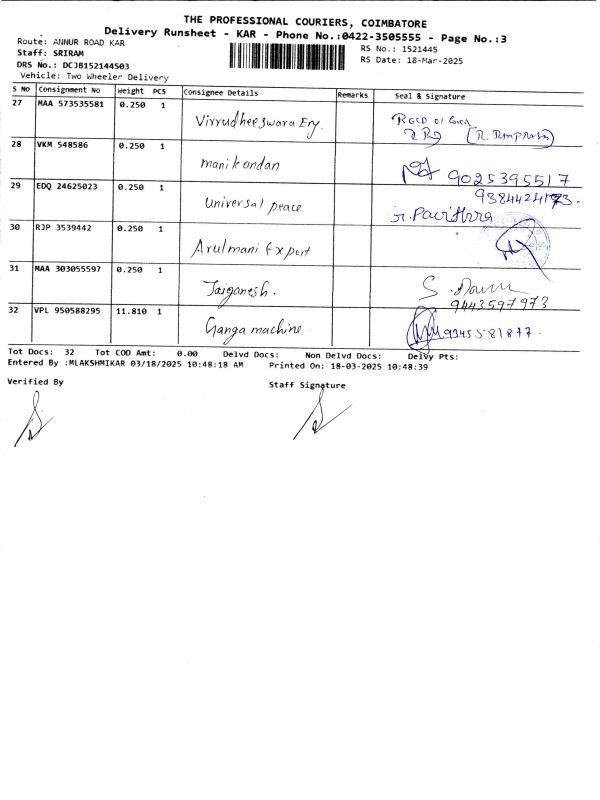 THE PROFESSIONAL COURIERS, COIMBATORE
Delivery Runsheet - KAR - Phone No.:0422-3505555 - Page No.:3
Route: ANNUR ROAD KAR
Staff: SRIRAM
DRS No.: DCJB152144503
Vehicle: Two Wheeler Delivery
RS No.: 1521445
RS Date: 18-Mar-2025
S No Consignment No Weight PCS Consignee Details Remarks Seal & Signature
27 MAA 573535581 0.250 1 Virrudheeswara Eng.
28 VKM 548586 0.250 1 manikandan 9025395517
29 EDQ 24625023 0.250 1 universal peace 9384424173. Pavithra
30 RJP 3539442 0.250 1 Arulmani Export
31 MAA 303055597 0.250 1 Jaiganesh. 9443597973
32 VPL 950588295 11.810 1 Ganga machine. 9345581877.
Tot Docs: 32 Tot COD Amt: 0.00 Delvd Docs: Non Delvd Docs: Delvy Pts:
Entered By :MLAKSHMIKAR 03/18/2025 10:48:18 AM Printed On: 18-03-2025 10:48:39
Verified By Staff Signature